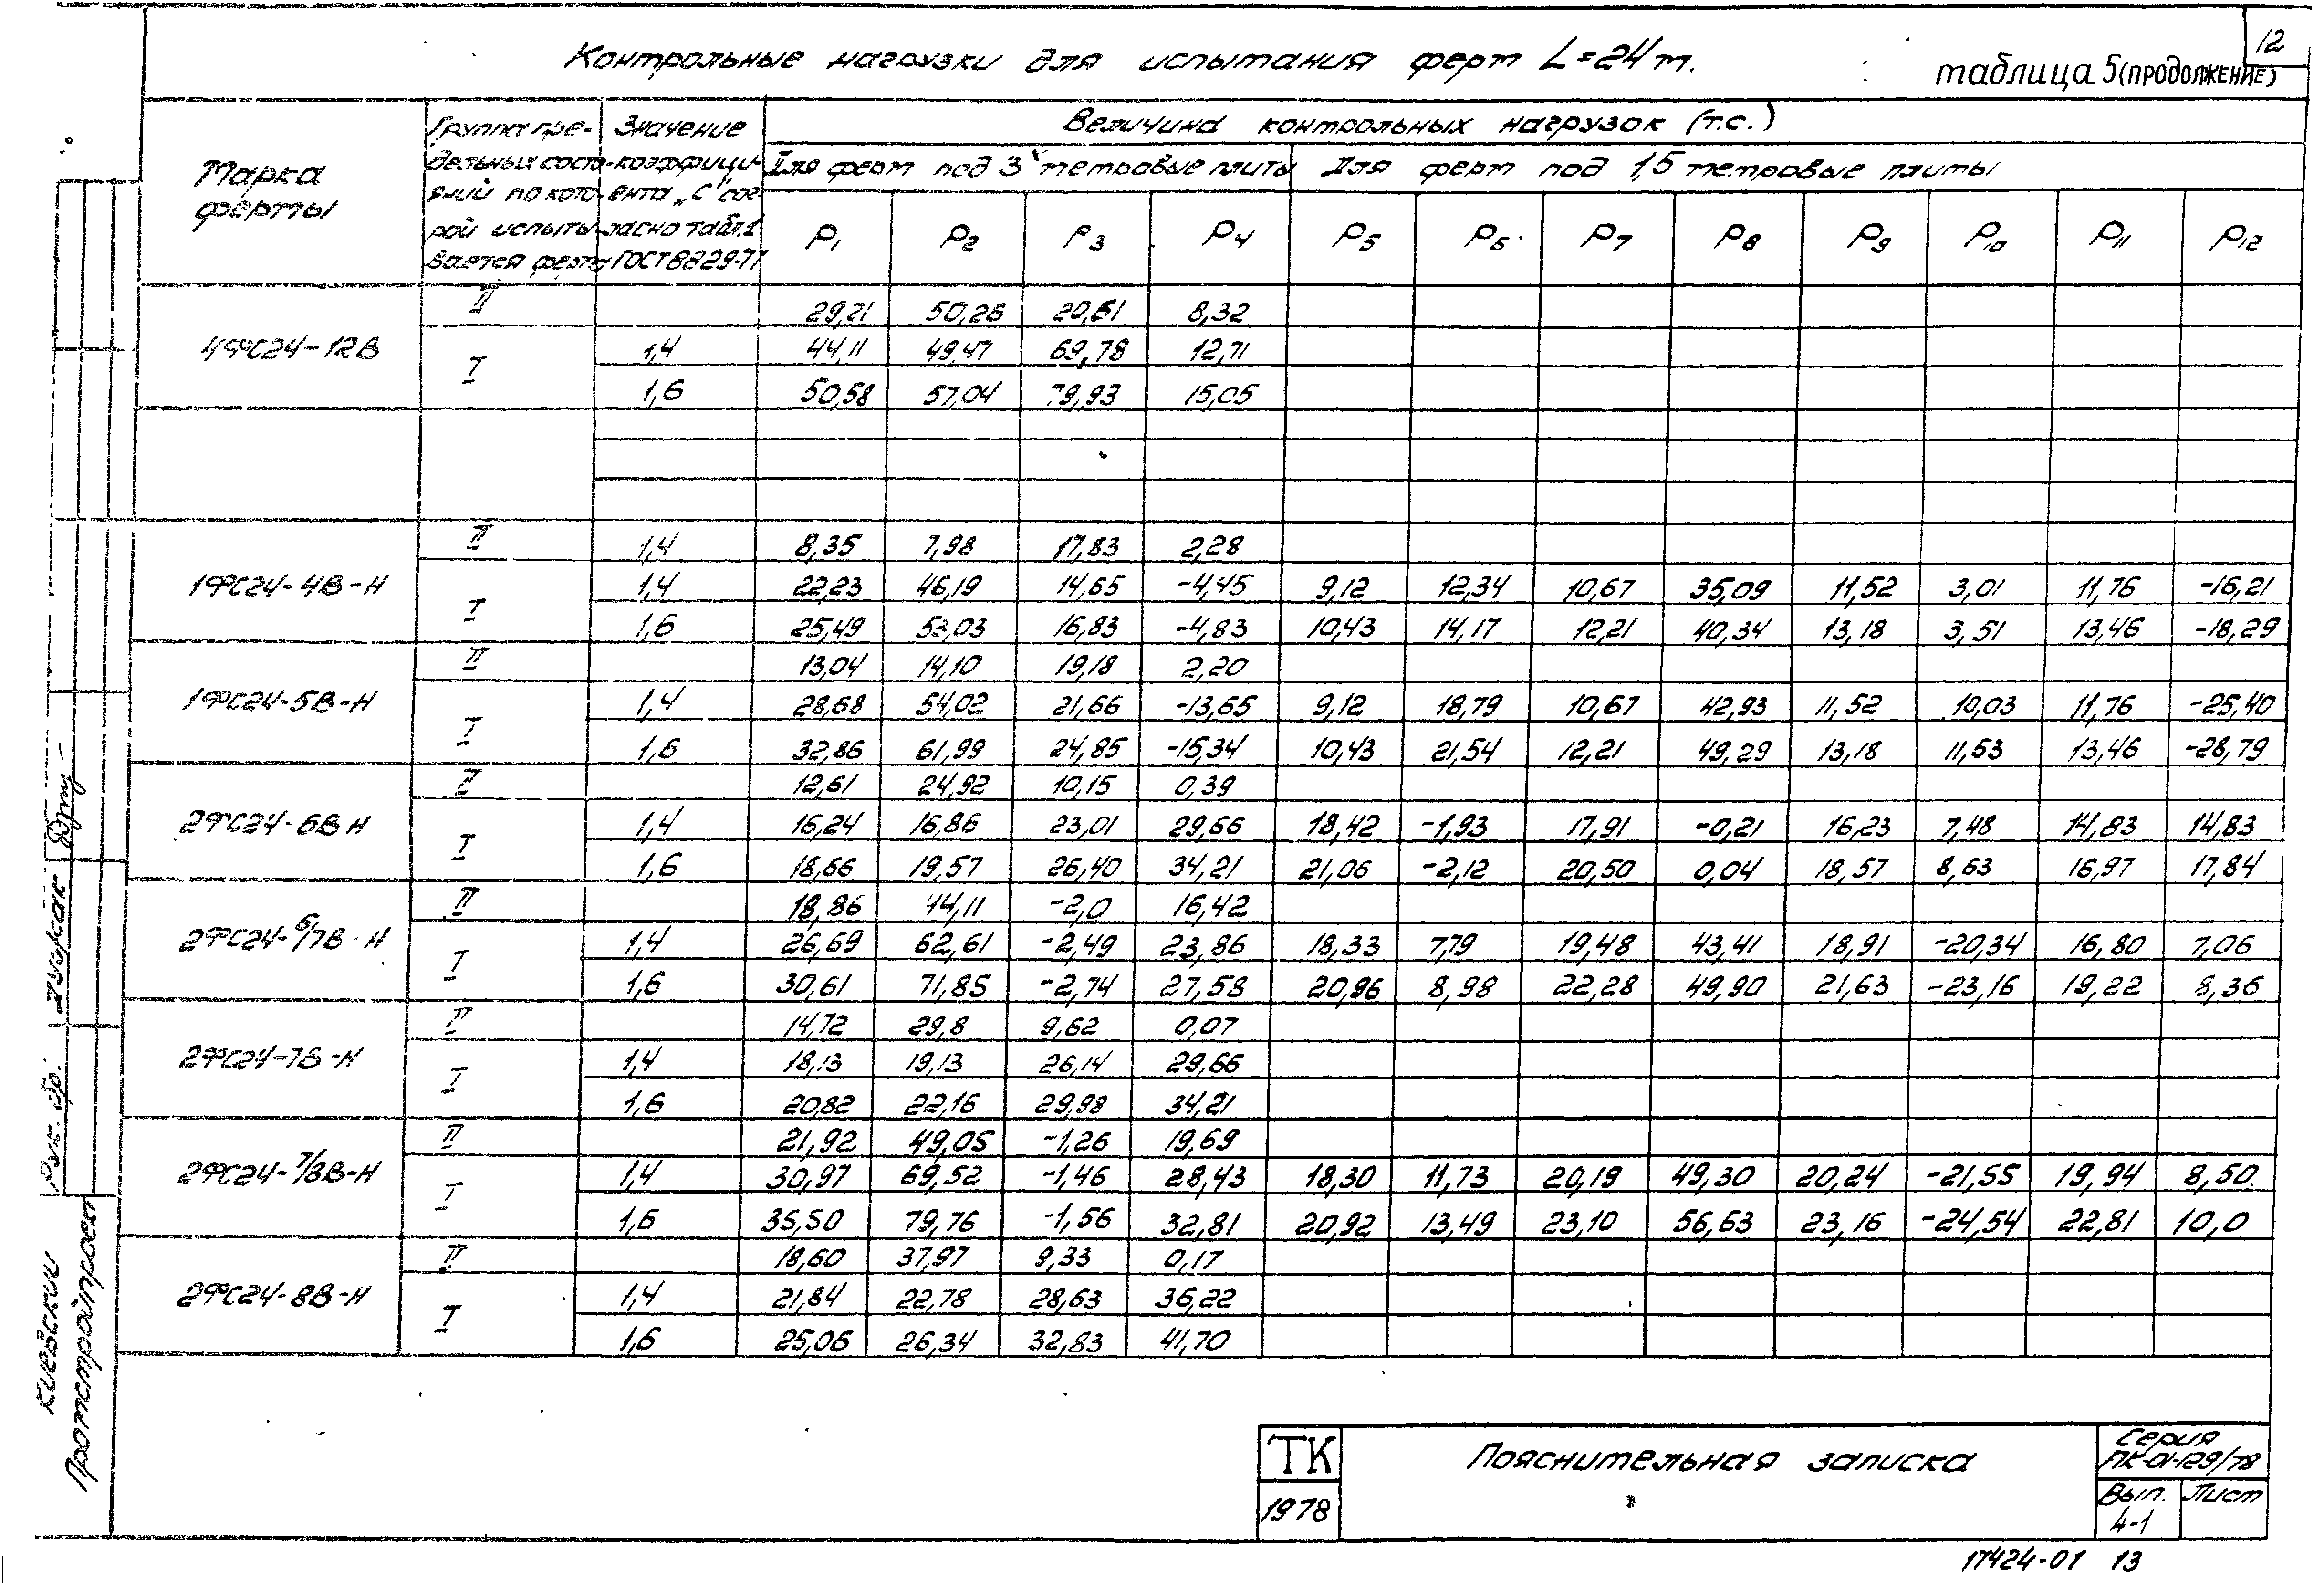 12
Контрольные нагрузки для испытания ферм L=24м.
таблица 5 (ПРОДОЛЖЕНИЕ)
Марка фермы
Группа пре-
дельных состо-
яний по кото-
рой испыты-
вается ферма
Значение
коэффици-
ента "С" сог-
ласно табл.1
ГОСТ 8829-77
Величина контрольных нагрузок (т.с.)
Для ферм под 3х метровые плиты
Для ферм под 1,5 метровые плиты
P1 P2 P3 P4 P5 P6 P7 P8 P9 P10 P11 P12
4ФС24-12В
II 29,21 50,26 20,61 8,32
I 1,4 44,11 49,47 69,78 12,71
1,6 50,58 57,04 79,93 15,05
1ФС24-4В-Н
II 1,4 8,35 7,98 17,83 2,28
I 1,4 22,23 46,19 14,65 -4,45 9,12 12,34 10,67 35,09 11,52 3,01 11,76 -16,21
1,6 25,49 53,03 16,83 -4,83 10,43 14,17 12,21 40,34 13,18 3,51 13,46 -18,29
1ФС24-5В-Н
II 13,04 14,10 19,18 2,20
I 1,4 28,68 54,02 21,66 -13,65 9,12 18,79 10,67 42,93 11,52 10,03 11,76 -25,40
1,6 32,86 61,99 24,85 -15,34 10,43 21,54 12,21 49,29 13,18 11,53 13,46 -28,79
2ФС24-6В Н
II 12,61 24,92 10,15 0,39
I 1,4 16,24 16,86 23,01 29,66 18,42 -1,93 17,91 -0,21 16,23 7,48 14,83 14,83
1,6 18,66 19,57 26,40 34,21 21,06 -2,12 20,50 0,04 18,57 8,63 16,97 17,84
2ФС24-6/7В-Н
II 18,86 44,11 -2,0 16,42
I 1,4 26,69 62,61 -2,49 23,86 18,33 7,79 19,48 43,41 18,91 -20,34 16,80 7,06
1,6 30,61 71,85 -2,74 27,58 20,96 8,98 22,28 49,90 21,63 -23,16 19,22 8,36
2ФС24-7В-Н
II 14,72 29,8 9,62 0,07
I 1,4 18,13 19,13 26,14 29,66
1,6 20,82 22,16 29,98 34,21
2ФС24-7/8В-Н
II 21,92 49,05 -1,26 19,69
I 1,4 30,97 69,52 -1,46 28,43 18,30 11,73 20,19 49,30 20,24 -21,55 19,94 8,50
1,6 35,50 79,76 -1,56 32,81 20,92 13,49 23,10 56,63 23,16 -24,54 22,81 10,0
2ФС24-8В-Н
II 18,60 37,97 9,33 0,17
I 1,4 21,84 22,78 28,63 36,22
1,6 25,06 26,34 32,83 41,70
Киевский
Промстройпроект
Рук. бр.
ТК
1978
Пояснительная записка
Серия
ПК-01-129/78
Вып.
4-1
Лист
17424-01 13